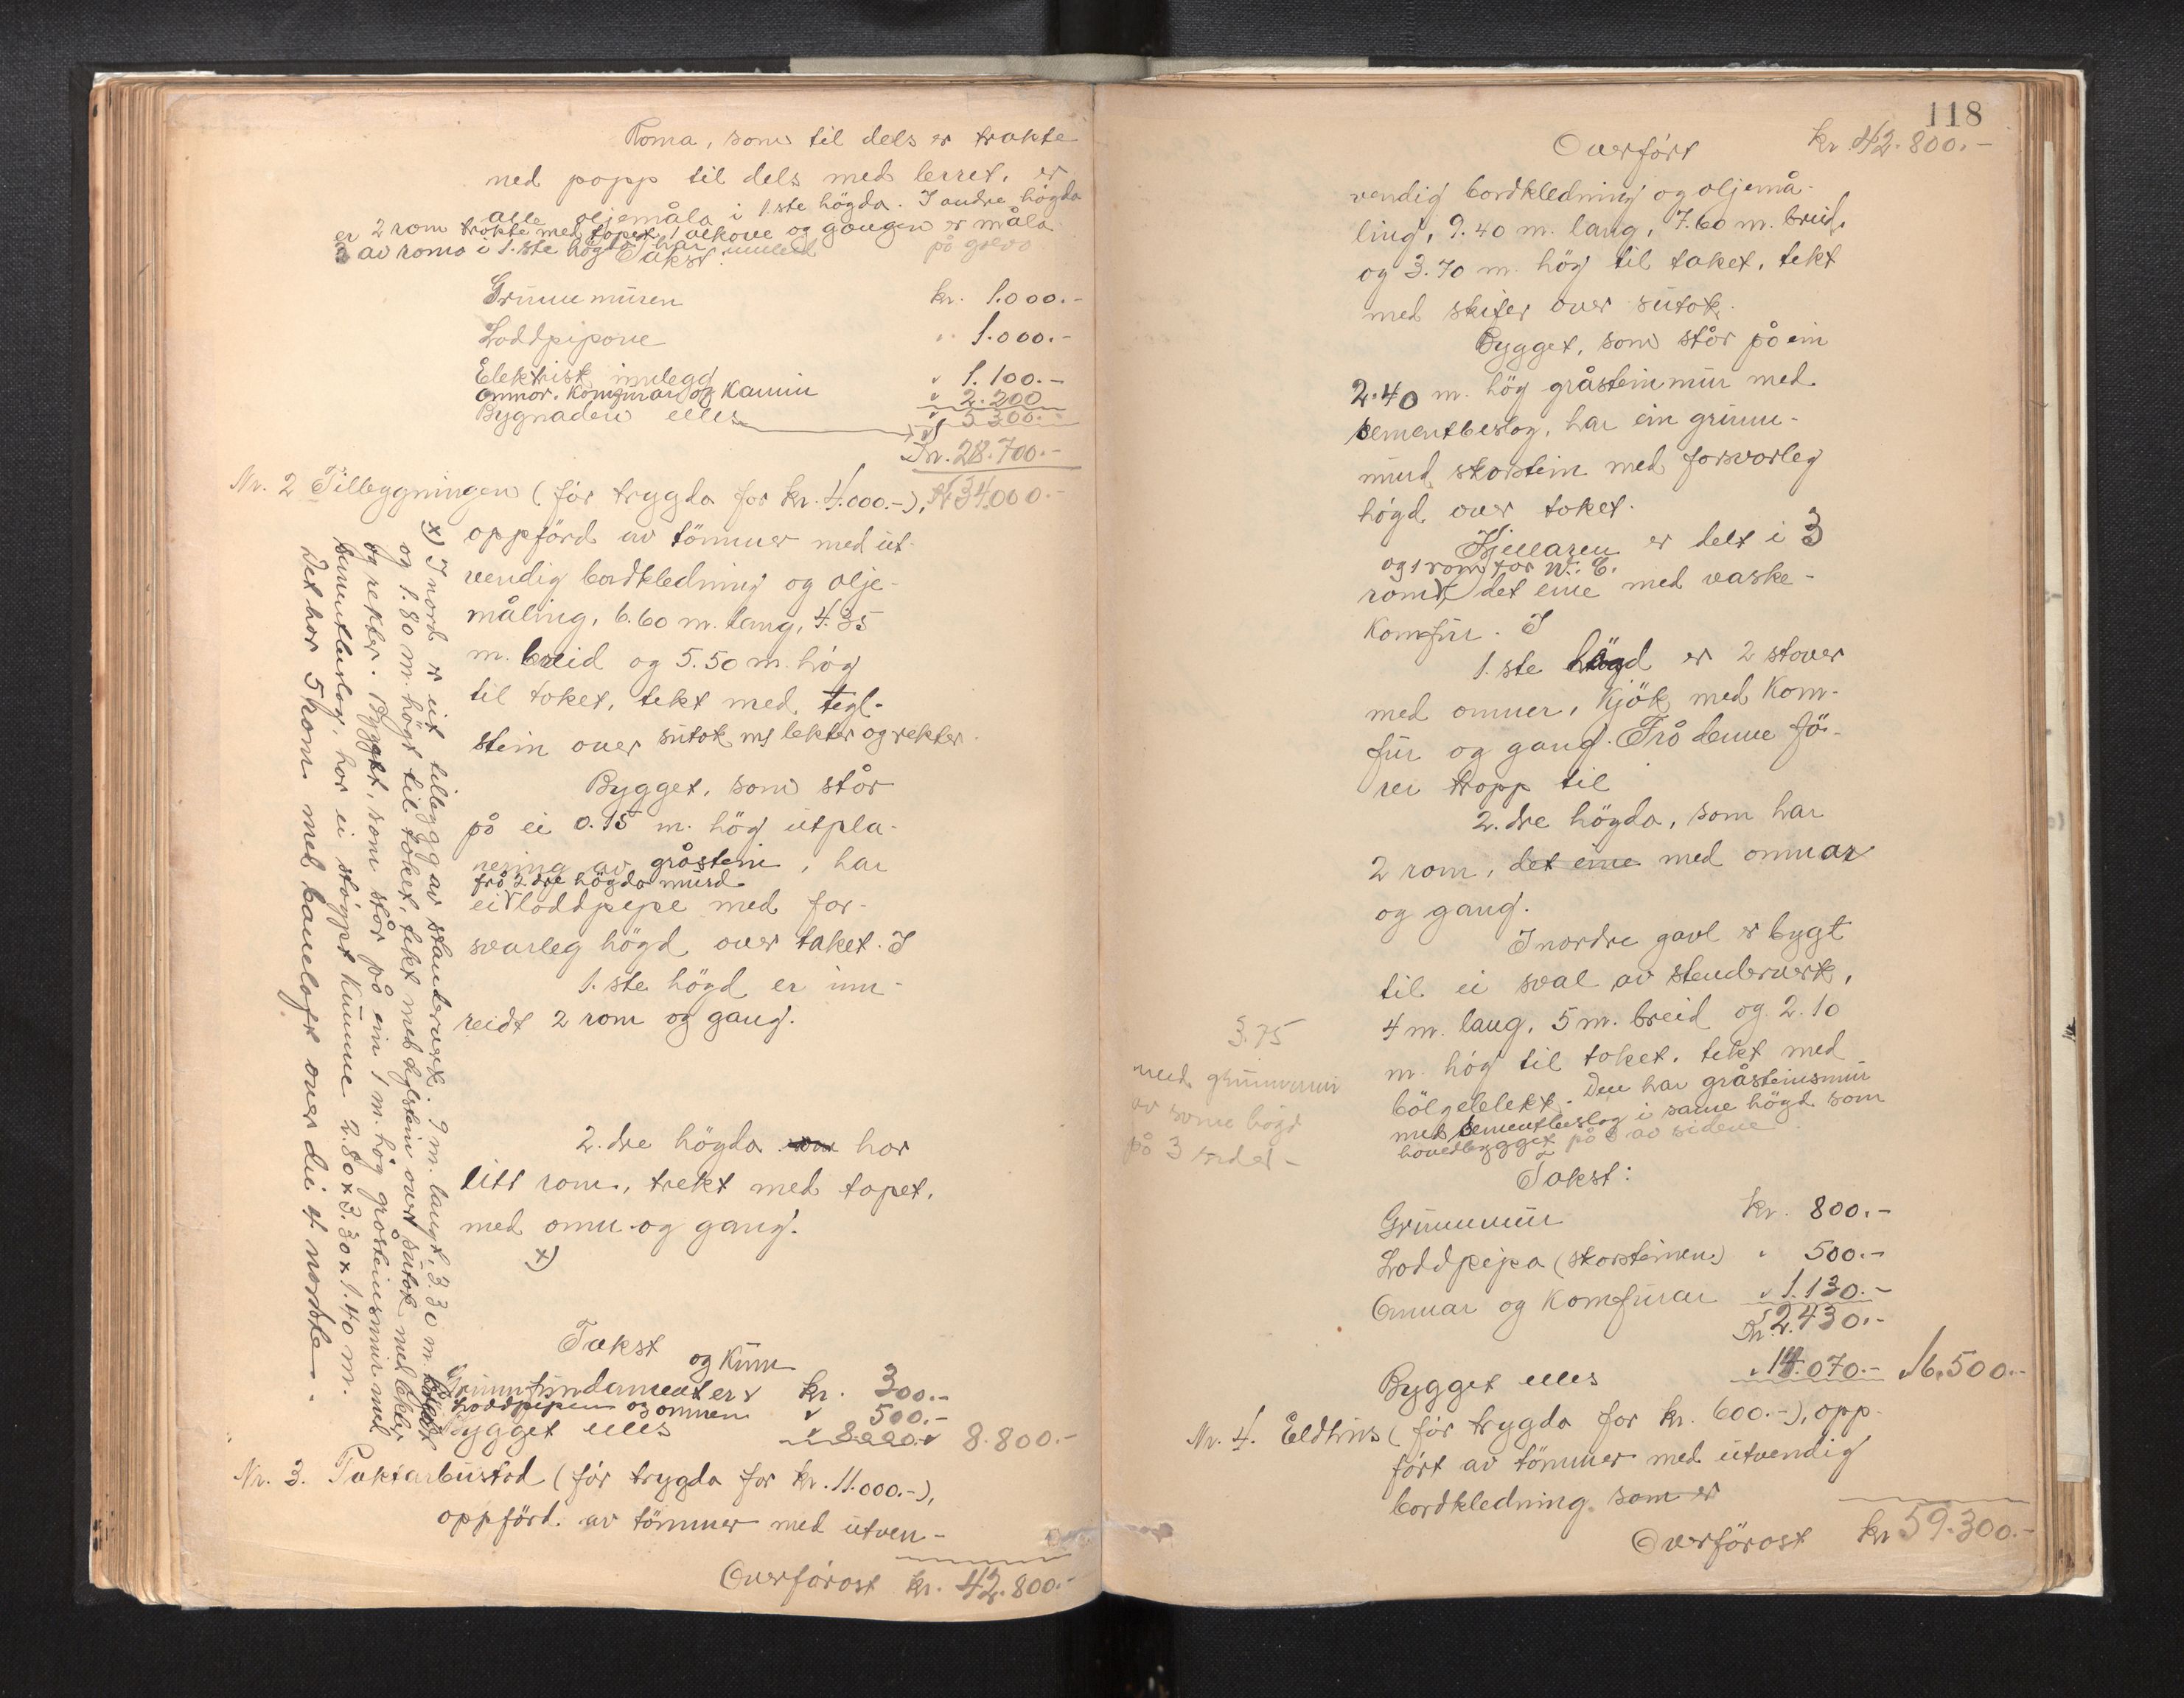 Roma, som til dels er trekte
med papp til dels med lerret, er
alle oljemåla i 1ste högda. I andre högda
er 2 rom trekte med tapet, 1 alkove og gangen er måla
2 av roma i 1.ste högda har på golvo
Takst:
Grunnmuren kr. 1.000.-
Loddpipone " 1.000.-
Elektrisk innlegg " 1.100.-
Omnar. Komfurar og Kamin " 2.200
Bygnaden elles " 5300.-
Kr. 28.700.-
Nr. 2 Tilbyggningen (för trygda for kr. 4.000.-), 34.000.-
oppförd av tömmer med ut-
vendig bordkledning og olje-
måling, 6.60 m. lang, 4.35
m. breid og 5.50 m. hög
til taket, tekt med tegl-
stein over sutak m/ lekter og rekter.
Bygget, som står
på ei 0.15 m. hög utpla-
nering av gråstein, har
frå 2 dre högda murd
ei loddpipe med for-
svarleg högd over taket. I
1.ste högd er inn-
reidt 2 rom og gang.
2.dre högda som har
litt rom, trekt med tapet,
med omn og gang.
x)
Takst
og Kum
Grunnfundamenter kr. 300.-
Loddpipen og omnen " 500.-
Bygget elles " 8.000.- 8.800.-
Nr. 3. Paktarbustad (för trygda for kr. 11.000.-),
oppförd av tömmer med utven-
Överförast kr. 42.800.-
x) I nord er eit tillegg av standerverk. 9 m. langt, 3.30 m. breidt
og 1.80 m. högt til taket, tekt med teglstein over sutak med lekter
og rekter. Bygget, som står på ein 1 m. hög gråsteinsmur med
sementbeslag, har ei stöypt Kumme 2.80 x 3.30 x 1.40 m.
Det har 5 rom med baneloft over dei nordste.
118
Overfört kr. 42.800.-
vendig bordkledning og oljemå-
ling, 9.40 m. lang, 7.60 m. breid,
og 3.70 m. hög til taket, tekt
med skifer over sutak.
Bygget, som står på ein
2.40 m. hög gråsteinmur med
sementbeslag, har ein grunn-
murd skorstein med forsvarleg
högd over taket.
Kjellaren er delt i 3
og 1 rom for W. C.
rom, det eine med vaske-
komfur. I
1.ste högd er 2 stover
med omner, kjök med kom-
fur og gang. Frå denne fö-
rer tropp til
2.dre högda, som har
2 rom, det eine med omnar
og gang.
I nordre gavl er bygt
til ei sval av stenderverk,
4 m. lang, 5 m. breid og 2.10
m. hög til taket, tekt med
bölgeblekk. Den har gråsteinsmur
med sementbeslag i same högd som
hovedbygget på 3 av sidene
3.75
med grunnmur
av same högd
på 3 sider -
Takst:
Grunnmur kr. 800.-
Loddpipa (skorsteinen) " 500.-
Omnar og Komfurar " 1.130.-
Kr. 2.430.-
Bygget elles " 14.070.- 16.500.-
Nr. 4. Eldhus (för trygda for kr. 600.-), opp-
fört av tömmer med utvendig
bordkledning som er
Overförast kr 59.300.-